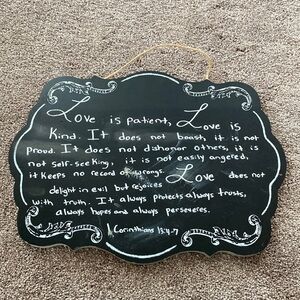 Love is patient, Love is
Kind. It does not boast, it is not
proud. It does not dishonor others, it is
not self-seeking, it is not easily angered,
it keeps no record of wrongs. Love does not
delight in evil but rejoices
with truth. It always protects always trusts,
always hopes and always perseveres.
Corinthians 13:4-7